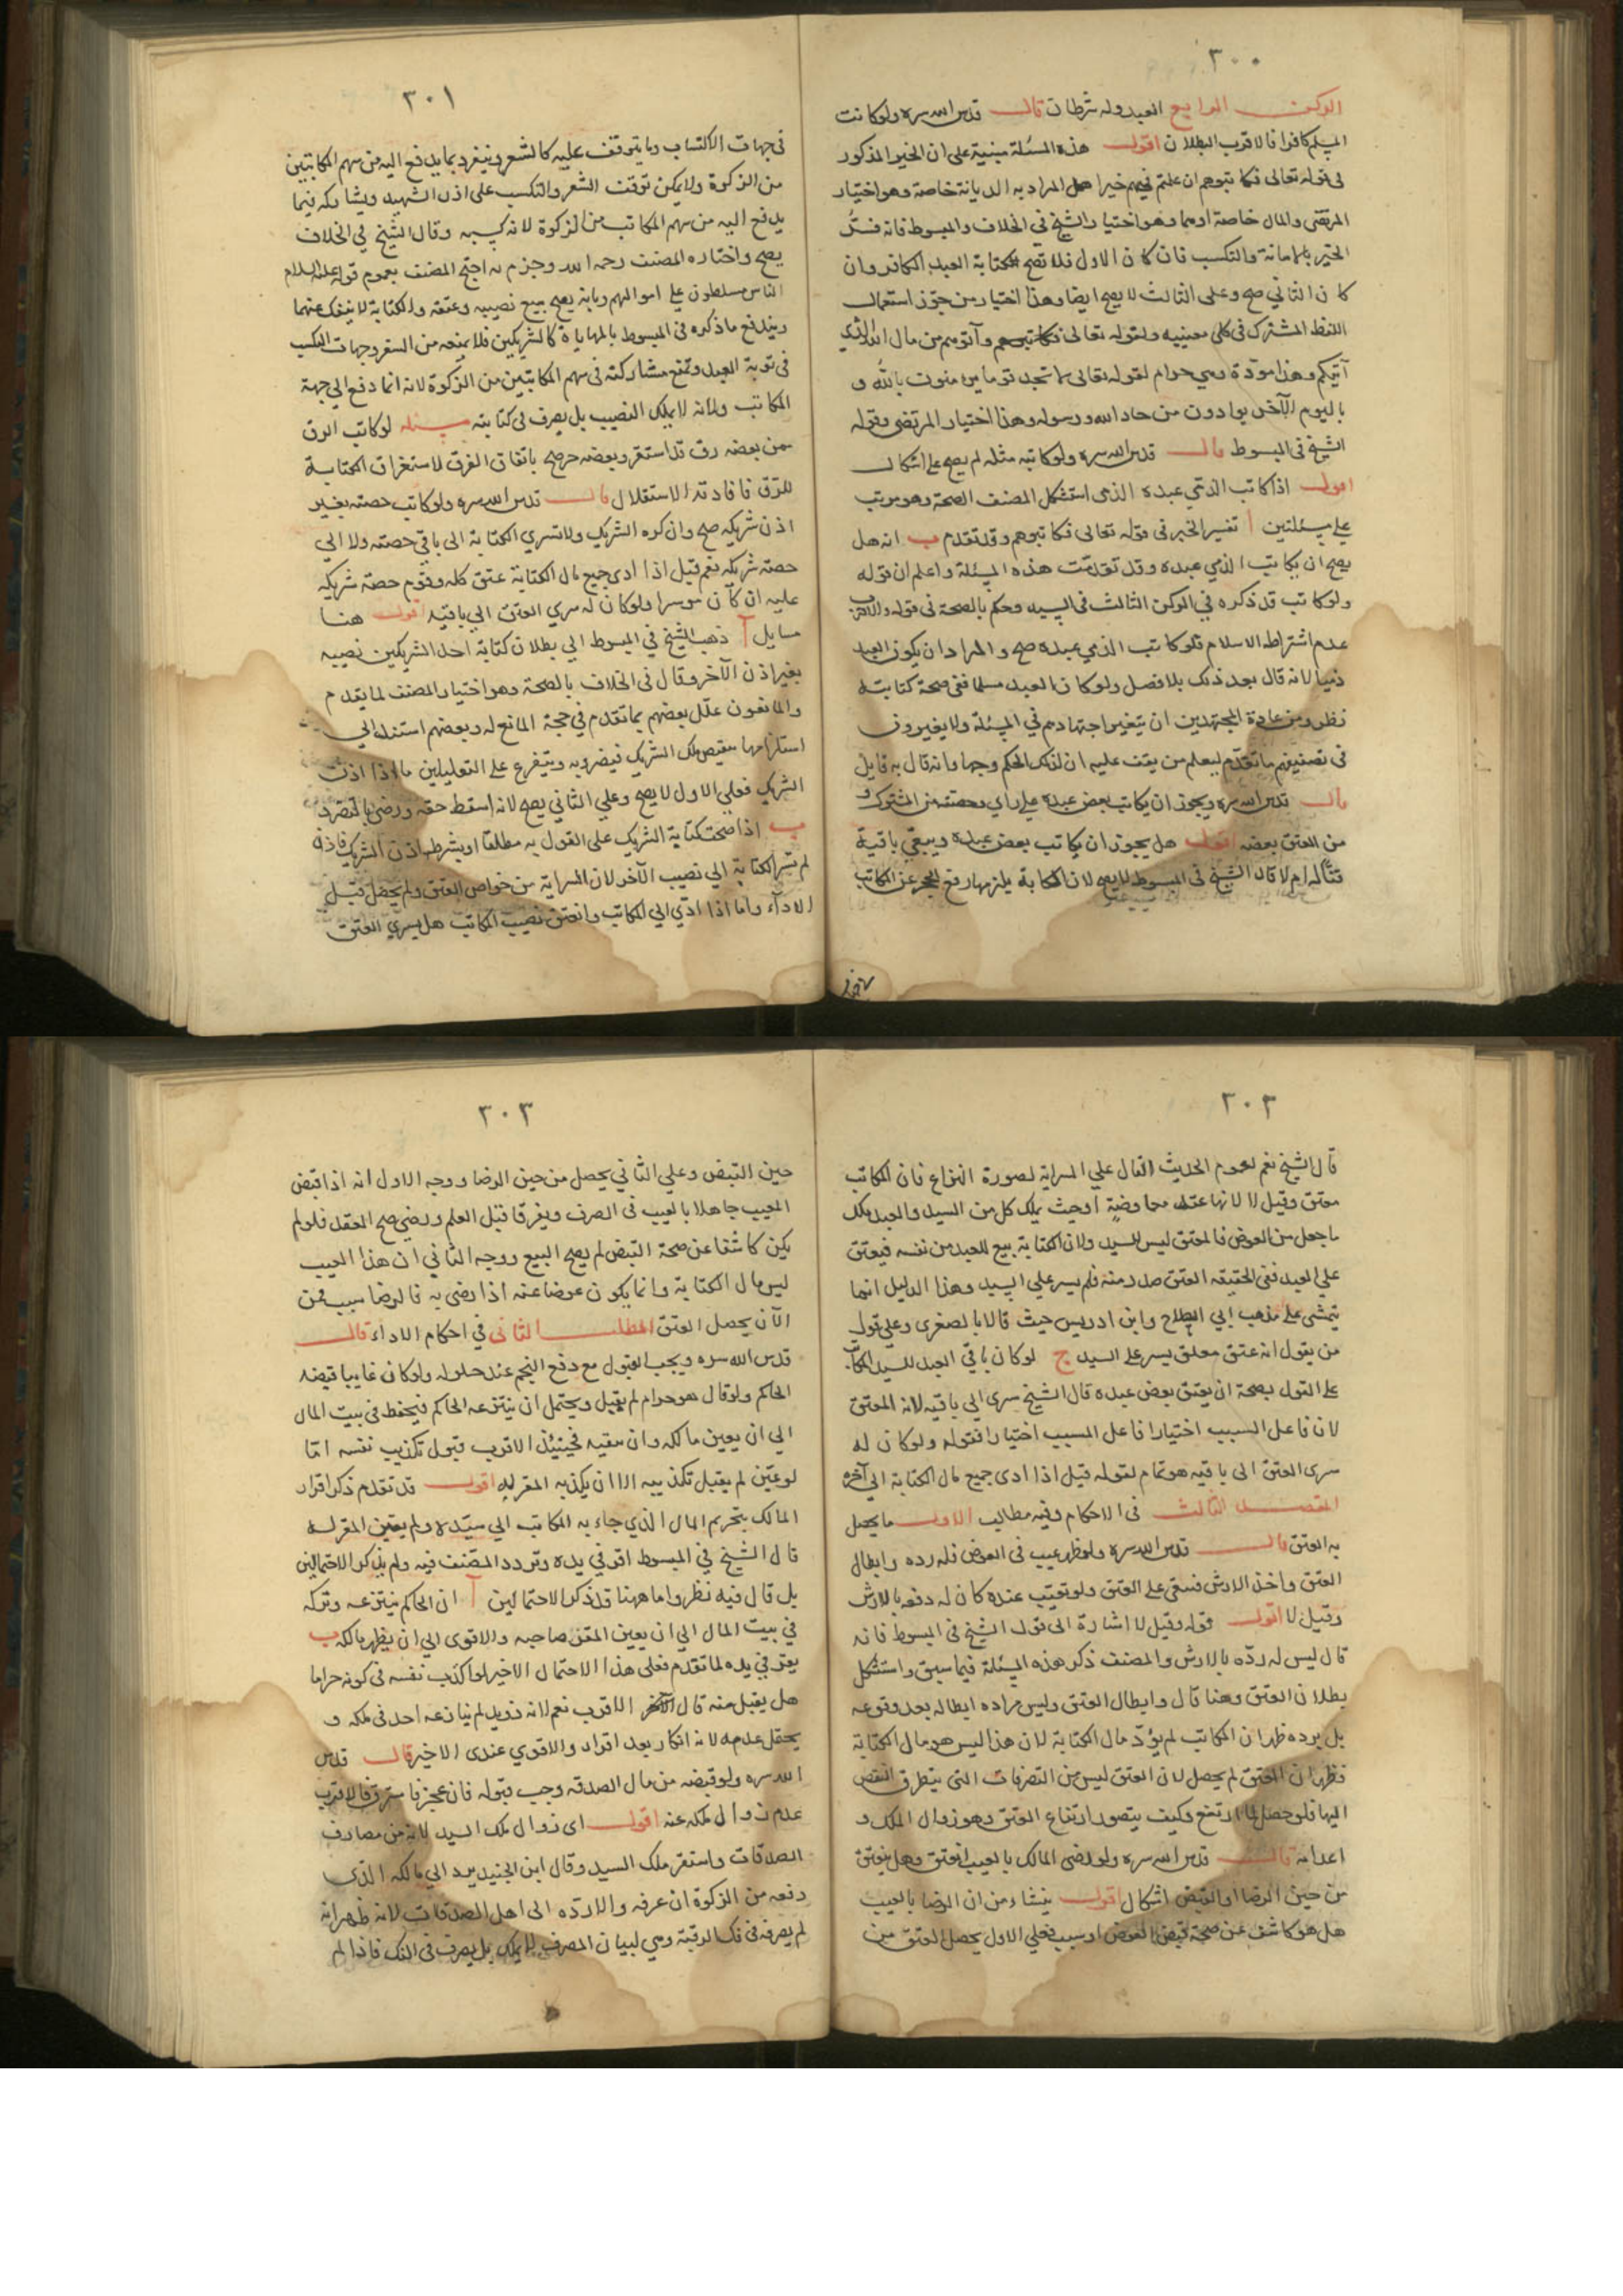 ٣٠٠
الركن الرابع العبد وله شرطان قال قدس الله سره ولو كاتب
المسلم كافرا فالاقرب البطلان اقول هذه المسئلة مبنية على ان الخير المذكور
في قوله تعالى فكاتبوهم ان علمتم فيهم خيرا هل المراد به الديانة خاصة وهو اختيار
المرتضى والمال خاصة او هما وهو اختيار الشيخ في الخلاف والمبسوط فانه فسّر
الخير بالامانة والتكسب فان كان الاول فلا تصح كتابة العبد الكافر وان
كان الثاني صح وعلى الثالث لا يصح ايضا وهذا اختيار من جوّز استعمال
اللفظ المشترك في كلى معنييه ولقوله تعالى فكاتبوهم وآتوهم من مال الله الذي
آتيكم وهذا مودّة وهي حرام لقوله تعالى لا تجد قوما يؤمنون بالله و
باليوم الآخر يوادون من حاد الله ورسوله وهذا اختيار المرتضى وقوله
الشيخ في المبسوط قال قدس الله سره ولو كاتبه مثله لم يصح على اشكال
اقول اذا كاتب الذمي عبده الذمي استشكل المصنف الصحة وهو مرتب
على مسئلتين آ تفسير الخير في قوله تعالى فكاتبوهم وقد تقدم ب انه هل
يصح ان يكاتب الذمي عبده وقد تقدمت هذه المسئلة واعلم ان قوله
ولو كاتب قد ذكره في الركن الثالث في السيد وحكم بالصحة في قوله والاقرب
عدم اشتراط الاسلام فلو كاتب الذمي عبده صح والمراد ان يكون العبد
ذميا لانه قال بعد ذلك بلا فصل ولو كان العبد مسلما ففي صحة كتابته
نظر ومن عادة المجتهدين ان يتغير اجتهادهم في المسئلة ولا يغيرون
في تصنيفهم ما تقدم ليعلم من يقف عليه ان لذلك الحكم وجها وانه قال به قايل
قال قدس الله سره ويجوز ان يكاتب بعض عبده على راي وحصته من المشترك و
من العتق بعضه اقول هل يجوز ان يكاتب بعض عبده ويبقي باقيه
قنا له ام لا قال الشيخ في المبسوط لا يصح لان الكتابة يلزمها رفع الحجر عن المكاتب
٣٠١
في جهات الاكتساب وما يتوقف عليه كالسفر وينفرد بما يدفع اليه من سهم المكاتبين
من الزكوة ولا يمكن توقف السفر والتكسب على اذن السيد ويشاركه فيما
يدفع اليه من سهم المكاتب من الزكوة لانه كسبه وقال الشيخ في الخلاف
يصح واختاره المصنف رحمه الله وجزم به احتج المصنف بعموم قوله عليه السلام
الناس مسلطون على اموالهم وبانه يصح بيع نصيبه وعتقه والكتابة لا ينفك عنهما
ويندفع ما ذكره في المبسوط بالمهاياة كالشريكين فلا يمنعه من السفر وجهات التكسب
في نوبة العبد ويمنع مشاركته في سهم المكاتبين من الزكوة لانه انما دفع الى جهة
المكاتب ولانه لا يملك النصيب بل يصرف في كتابته مسئلة لو كاتب الرق
ممن بعضه رق قد استقر وبعضه حر صح باتفاق الفرق لاستغراق الكتابة
للرق فافادته الاستقلال قال قدس الله سره ولو كاتب حصته بغير
اذن شريكه صح وان كره الشريك ولا تسري الكتابة الى باقي حصته ولا الى
حصة شريكه نعم قيل اذا ادى جميع مال الكتابة عتق كله وقوم حصة شريكه
عليه ان كان موسرا ولو كان له سرى العتق الى باقيه اقول هنا
مسايل آ ذهب الشيخ في المبسوط الى بطلان كتابة احد الشريكين نصيبه
بغير اذن الآخر وقال في الخلاف بالصحة وهو اختيار المصنف لما تقدم
والمانعون علّل بعضهم بما تقدم في حجة المانع له وبعضهم استند الى
استلزامها تنقيص ملك الشريك فيضر به ويتفرع على التعليلين ما اذا اذن
الشريك فعلى الاول لا يصح وعلى الثاني يصح لانه اسقط حقه ورضي بالضرر
ب اذا صحت كتابة الشريك على القول به مطلقا او بشرط اذن الشريك فاذن
لم تسر الكتابة الى نصيب الآخر لان السراية من خواص العتق ولم يحصل قبل
الاداء واما اذا ادّى الى المكاتب وانعتق نصيب المكاتب هل يسري العتق
٣٠٢
قال الشيخ نعم لعموم الحديث الدال على السراية لصورة النزاع فان المكاتب
معتق وقيل لا لانها عنده معاوضة او حيث يملك كل من السيد والعبد يملك
ما جعل من العوض فالمعتق ليس للسيد ولان الكتابة بيع للعبد من نفسه فيعتق
على العبد ففي الحقيقه العتق صدر منه فلم يسر على السيد وهذا الدليل انما
يتمشى على مذهب ابي الصلاح وابن ادريس حيث قالا بالصغرى وعلى قول
من يقول انه عتق معلق يسر على السيد ج لو كان باقي العبد للسيد المكاتب
على القول بصحة ان يعتق بعض عبده قال الشيخ سرى الى باقيه لانه المعتق
لان فاعل السبب اختيارا فاعل المسبب اختيارا فقوله ولو كان له
سرى العتق الى باقيه هو تمام لقوله قيل اذا ادى جميع مال الكتابة الى آخره
المقصد الثالث في الاحكام وفيه مطالب الاول ما يحصل
به العتق قال قدس الله سره ولو ظهر عيب في العوض فله رده وابطال
العتق واخذ الارش فسقى على العتق ولو تعيّب عنده كان له دفعه بالارش
وقيل لا اقول قوله وقيل لا اشارة الى قول الشيخ في المبسوط فانه
قال ليس له ردّه بالارش والمصنف ذكر هذه المسئلة فيما سبق واستشكل
بطلان العتق وهنا قال وابطال العتق وليس مراده ابطاله بعد وقوعه
بل برده ظهر ان المكاتب لم يؤدّ مال الكتابة لان هذا ليس هو مال الكتابة
فظهر ان العتق لم يحصل لان العتق ليس من التصرفات التي يتطرق النقص
اليها فلو حصل لما ارتفع وكيف يتصور ارتفاع العتق وهو زوال الملك و
اعدامه قال قدس الله سره ولو رضي المالك بالعيب انعتق وهل ينعتق
من حين الرضا او القبض اشكال اقول ينشاء من ان الرضا بالعيب
هل هو كاشف عن صحة قبض العوض او سبب فعلى الاول يحصل العتق من
٣٠٣
حين القبض وعلى الثاني يحصل من حين الرضا ووجه الاول انه اذا قبض
المعيب جاهلا بالعيب في الصرف وتفرقا قبل العلم ورضي صح العقد فلو لم
يكن كاشفا عن صحة القبض لم يصح البيع ووجه الثاني ان هذا المعيب
ليس مال الكتابة وانما يكون عوضا عنه اذا رضي به فالرضا سبب فمن
الآن يحصل العتق المطلب الثاني في احكام الاداء قال
قدس الله سره ويجب القبول مع دفع النجم عند حلوله ولو كان غايبا قبضه
الحاكم ولو قال هو حرام لم يقبل ويحتمل ان ينتزعه الحاكم فيحفظ في بيت المال
الى ان يعين مالكه وان بقيه فحينئذ الاقرب قبول تكذيب نفسه امّا
لو عيّن لم يقبل تكذيبه الا ان يكذبه المقر له اقول قد تقدم ذكر اقرار
المالك بتحريم المال الذي جاء به المكاتب الى سيّده ولم يعين المقر له
قال الشيخ في المبسوط اقر في يده وتردد المصنف فيه ولم يذكر الاحتمالين
بل قال فيه نظر واما ههنا قد ذكر الاحتمالين آ ان الحاكم ينتزعه وتركه
في بيت المال الى ان يعين المقر صاحبه والاقوى الى ان يظهر مالكه ب
يقر في يده لما تقدم فعلى هذا الاحتمال الاخير لو اكذب نفسه في كونه حراما
هل يقبل منه قال الاقرب نعم لانه ذو يد لم ينازعه احد في ملكه و
يحتمل عدمه لانه انكار بعد اقرار والاقوى عندي الاخير قال قدس
الله سره ولو قبضه من مال الصدقه وجب قبوله فان عجز فاسترق فالاقرب
عدم زوال ملكه عنه اقول اى زوال ملك السيد لانه من مصارف
الصدقات واستقر ملك السيد وقال ابن الجنيد يرد الى مالكه الذي
دفعه من الزكوة ان عرفه والا ردّه الى اهل الصدقات لانه ظهر انه
لم يصرفه في فك الرقبة وهي لبيان المصرف لا يملك بل يصرف في الفك فاذا لم